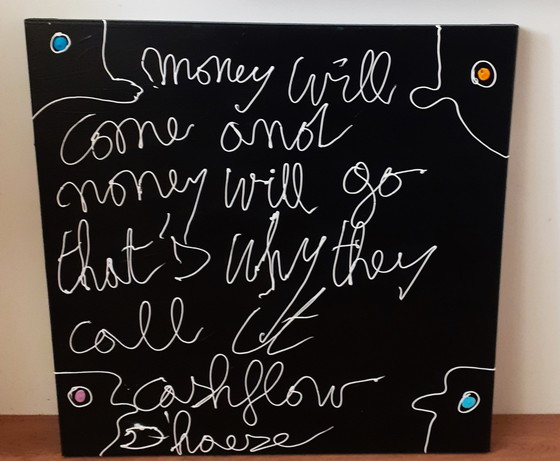 money will
come and
money will go
that's why they
call it
cashflow
D'haese